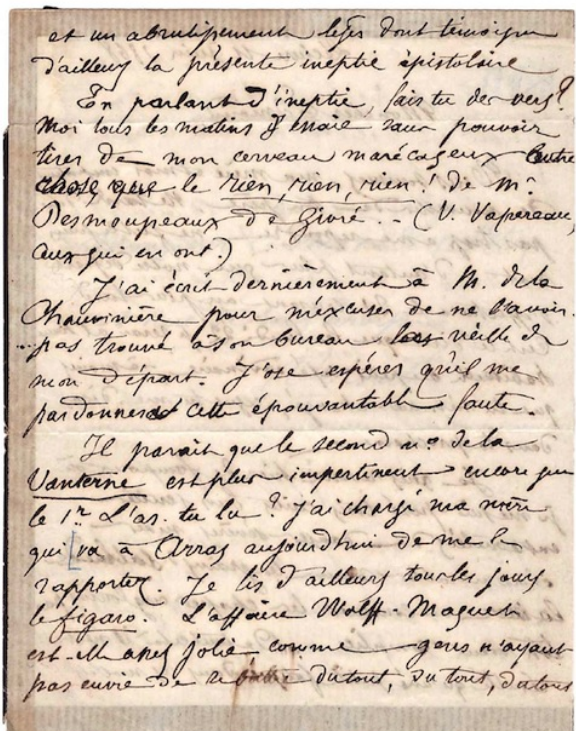 et un abrutissement légers dont témoigne
d'ailleurs la présente ineptie épistolaire
En parlant d'ineptie, fais tu des vers?
Moi tous les matins j'essaie sans pouvoir
tirer de mon cerveau marécageux autre
chose, que le rien, rien, rien! de Mr
Desmoupeaux de Givré... (V. Vapereau,
ceux qui en ont.)
J'ai écrit dernièrement à M. de la
Chauvinière pour m'excuser de ne l'avoir
pas trouvé à son bureau la veille de
mon départ. J'ose espérer qu'il me
pardonnera cette épouvantable faute.
Il parait que le second no. de la
Lanterne est plus impertinent encore que
le 1r. L'as-tu lu? J'ai chargé ma mère
qui va à Arras aujourd'hui de me la
rapporter. Je lis d'ailleurs tous les jours
le figaro. L'affaire Wolff-Maquet
est-elle assez jolie comme gens n'ayant
pas envie de se battre du tout, du tout, du tout